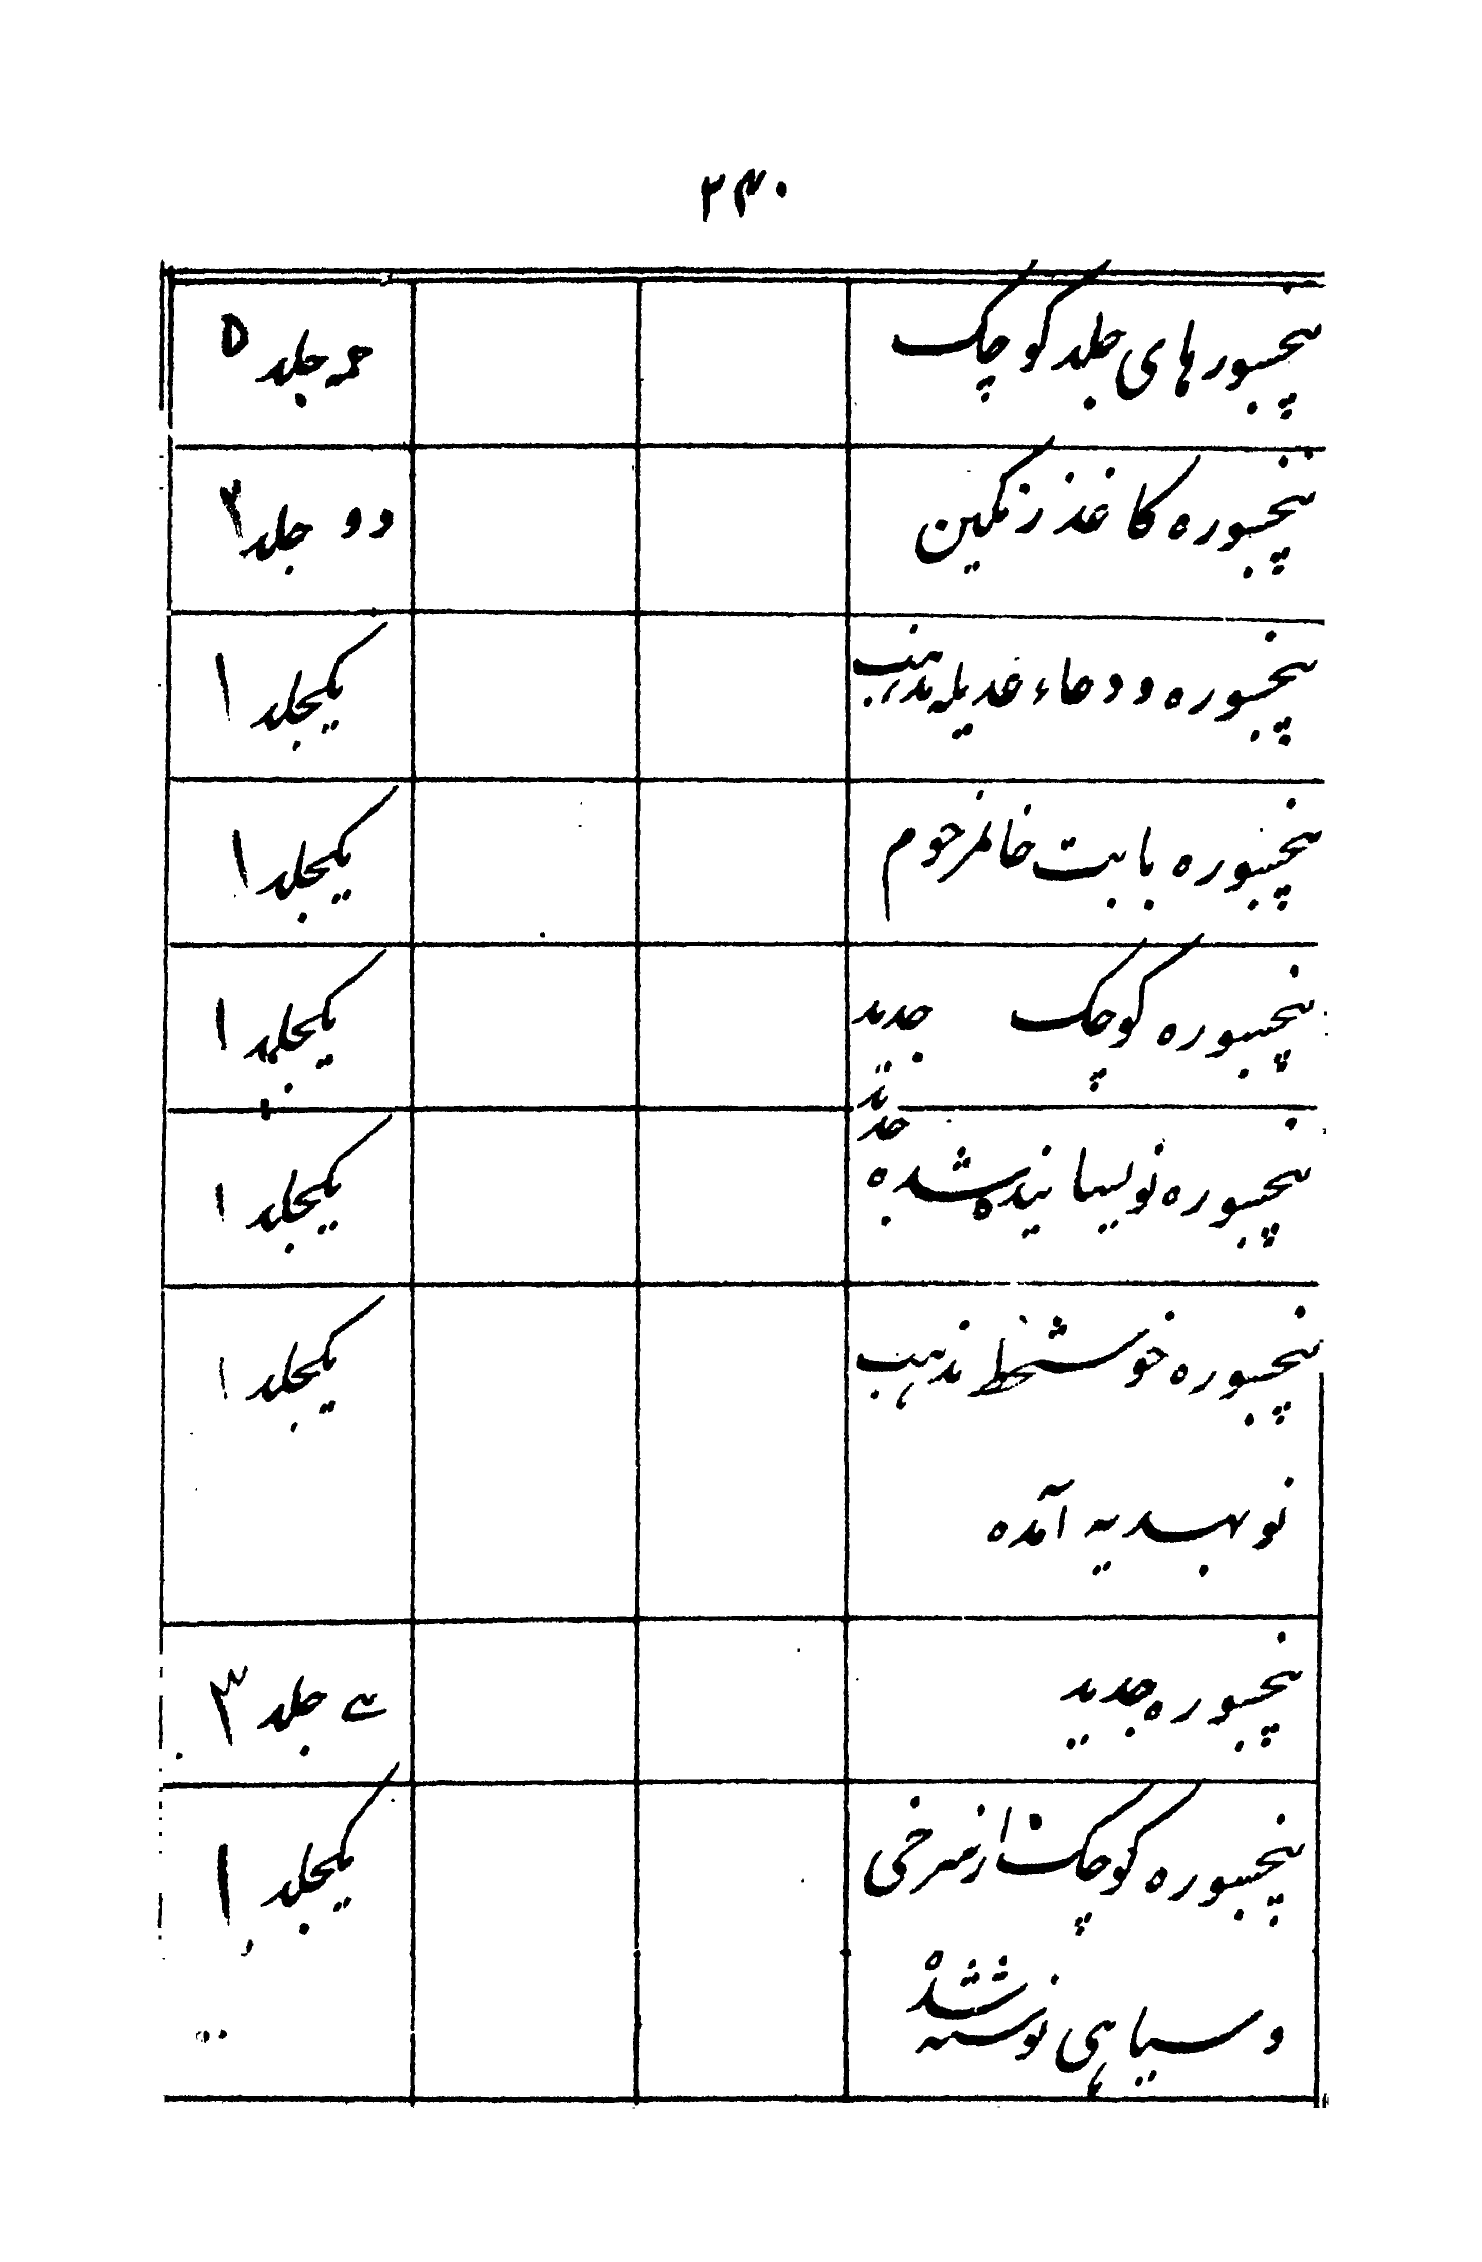 ۲۳۰
پنجسورهای جلد کوچک جلد ۵
پنجسوره کاغذ رنگین دو جلد ۲
پنجسوره و دعاء عدیله مذهب یکجلد ۱
پنجسوره بابت خانم مرحوم یکجلد ۱
پنجسوره کوچک جدید یکجلد ۱
پنجسوره نویسانیده شده یکجلد ۱
پنجسوره خوشخط مذهب یکجلد ۱
نو بهدیه آمده
پنجسوره جدید سه جلد ۳
پنجسوره کوچک از سرخی یکجلد ۱
و سیاهی نوشته شده